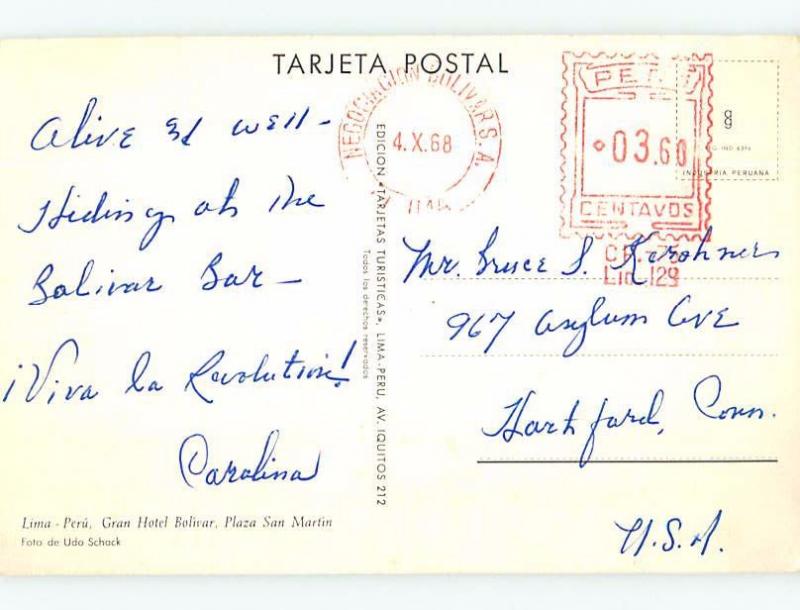 TARJETA POSTAL
Alive & well -
Hiding at the
Bolivar Bar -
¡Viva la Revolution!
Carolina
Lima - Perú, Gran Hotel Bolivar, Plaza San Martin
Foto de Udo Schack
EDICION «TARJETAS TURISTICAS», LIMA-PERU, AV. IQUITOS 212
Todos los derechos reservados
NEGOCIACION BOLIVAR S. A.
4.X.68
LIMA
03.60
CENTAVOS
INDUSTRIA PERUANA
Lic. 129
Mr. Bruce S. Kirchner
967 Asylum Ave
Hartford, Conn.
U.S.A.